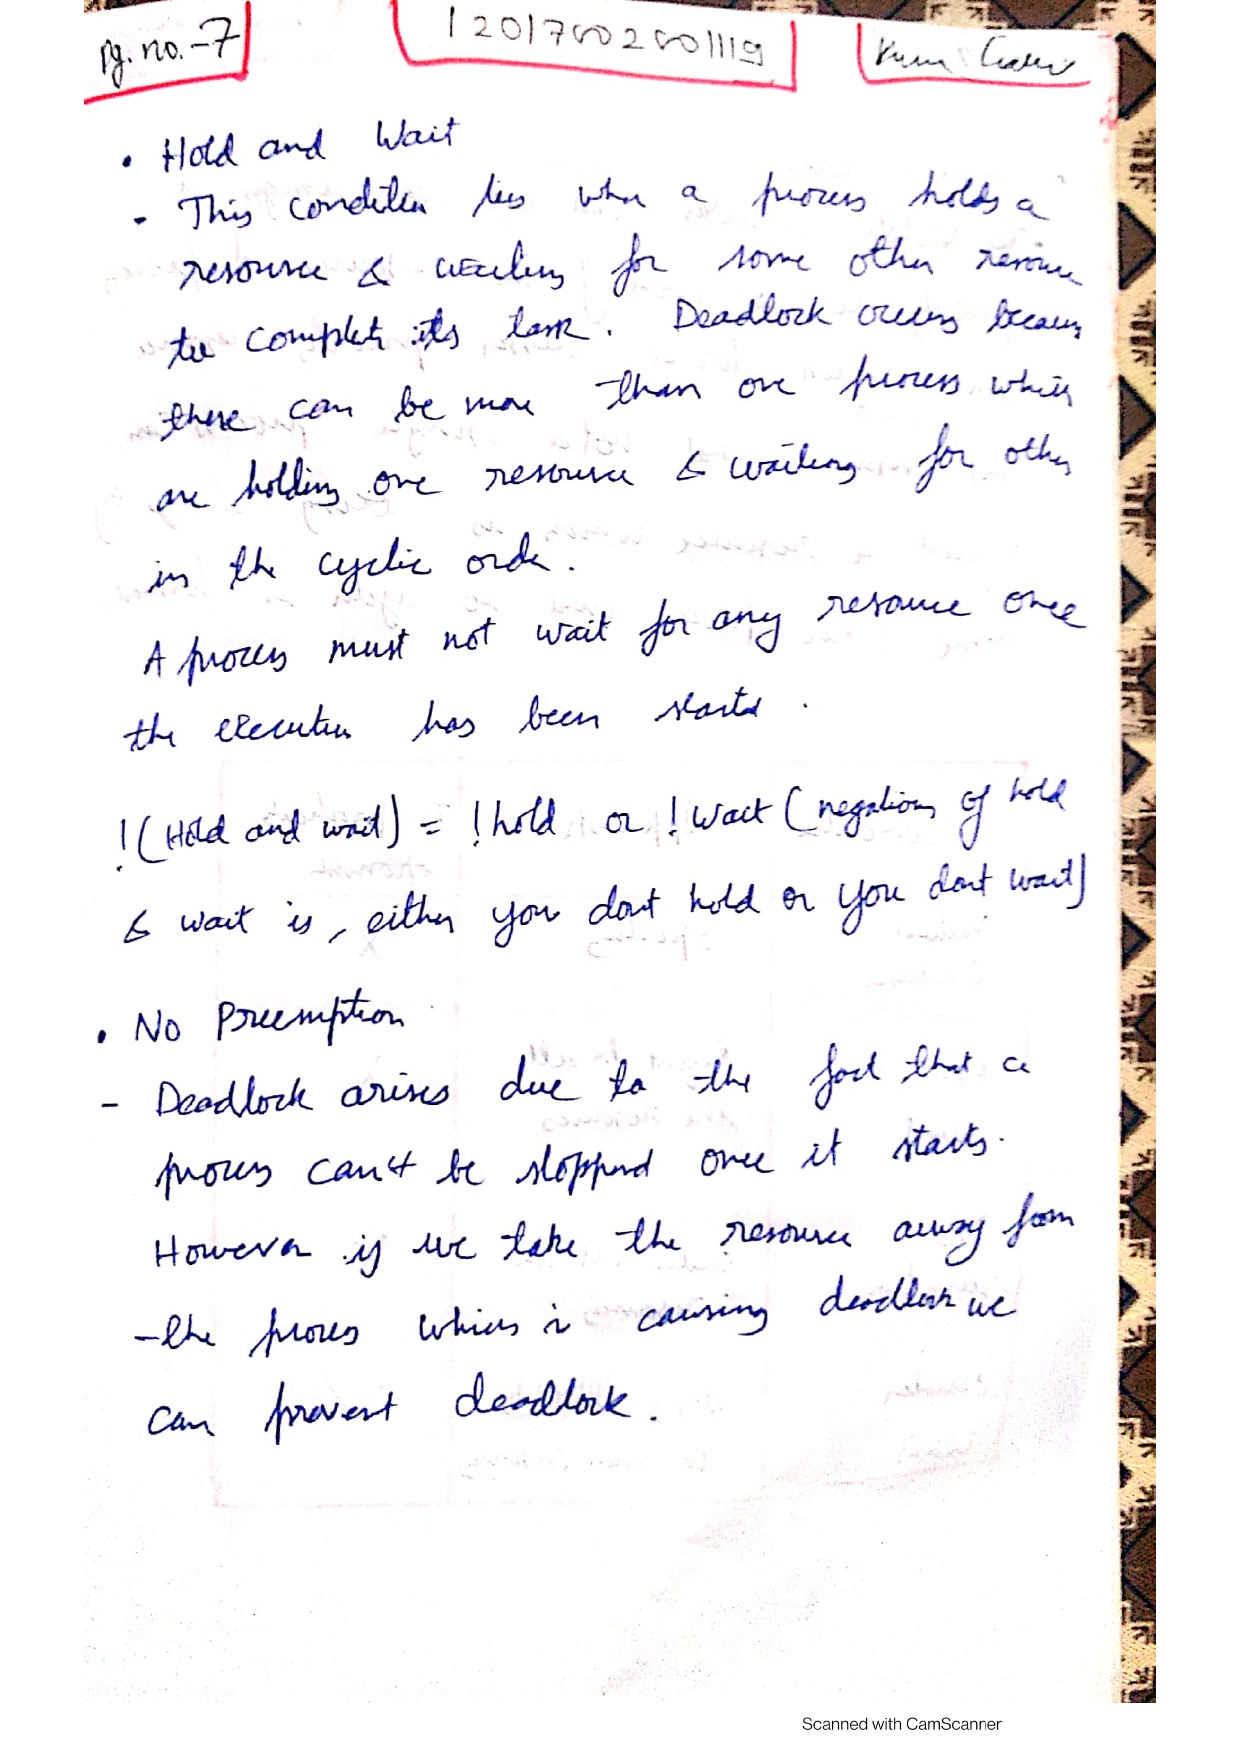 pg. no.-7
12017002001119
• Hold and Wait
- This condition lies when a process holds a
resource & waiting for some other resource
to complete its task. Deadlock occurs because
there can be more than one process which
are holding one resource & waiting for other
in the cyclic order.
A process must not wait for any resource once
the execution has been started.
!(Hold and wait) = !hold or !wait (negation of hold
& wait is, either you dont hold or you dont wait)
• No Preemption
- Deadlock arises due to the fact that a
process can't be stopped once it starts.
However if we take the resource away from
the process which is causing deadlock we
can prevent deadlock.
Scanned with CamScanner